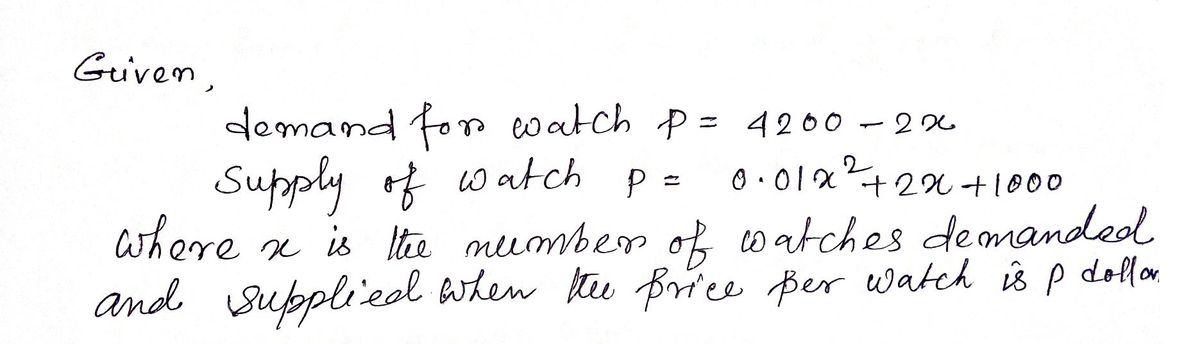 Given,
demand for watch p = 4200 - 2x
Supply of watch p = 0.01x²+2x+1000
where x is the number of watches demanded
and supplied when the price per watch is p dollar